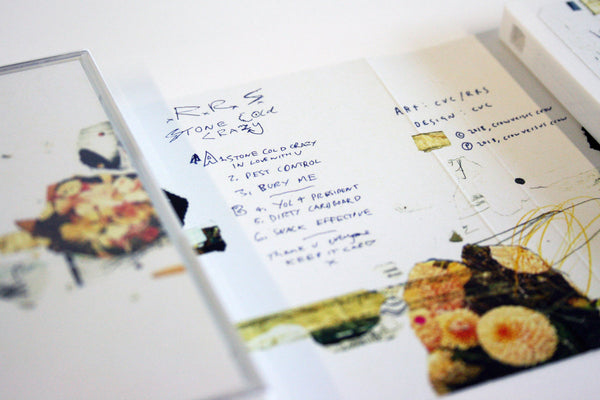 .R.R.S.
STONE COLD
CRAZY
A 1. STONE COLD CRAZY
IN LOVE WITH U
2. PEST CONTROL
3. BURY ME
B 4. YOU 4 PRESIDENT
5. DIRTY CARDBOARD
6. SNACK EFFECTIVE
THANK U everyone
KEEP IT CRAZY
X
ART: CVC/RRS
DESIGN: CVC
© 2018, CROWVERSUSCROW
℗ 2018, CROWVERSUSCROW